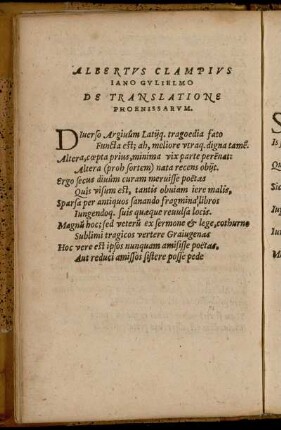 ALBERTVS CLAMPIVS
IANO GVLIELMO
DE TRANSLATIONE
PHOENISSARVM.
Diuerso Argiuûm Latijq́. tragoedia fato
Functa est; ah, meliore vtraq. digna tamē.
Altera, cœpta prius, minima vix parte perēnat:
Altera (proh sortem) nata recens obijt.
Ergo secus diuûm curam meruisse poëtas
Quis visum est, tantis obuiam iere malis,
Sparsa per antiquos sanando fragmina libros
Iungendoq́. suis quæque reuulsa locis.
Magnū hoc; sed veterū ex sermone & lege, cothurno
Sublimi tragicos vertere Graiugenas
Hoc vere est ipsos nunquam amisisse poëtas,
Aut reduci amissos sistere posse pede